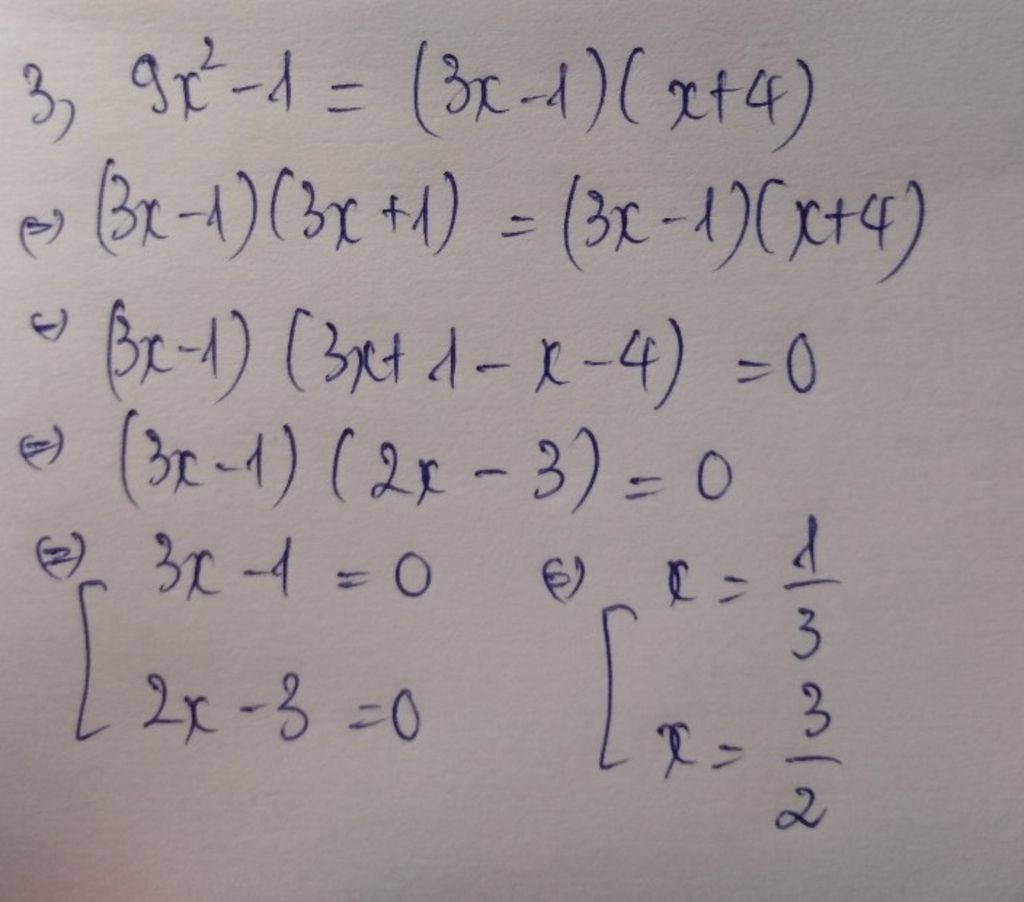 3, 9x² - 1 = (3x - 1)(x + 4)
⇔ (3x - 1)(3x + 1) = (3x - 1)(x + 4)
⇔ (3x - 1) (3x + 1 - x - 4) = 0
⇔ (3x - 1) (2x - 3) = 0
⇔ [ 3x - 1 = 0 ⇔ [ x = 1/3
2x - 3 = 0 x = 3/2